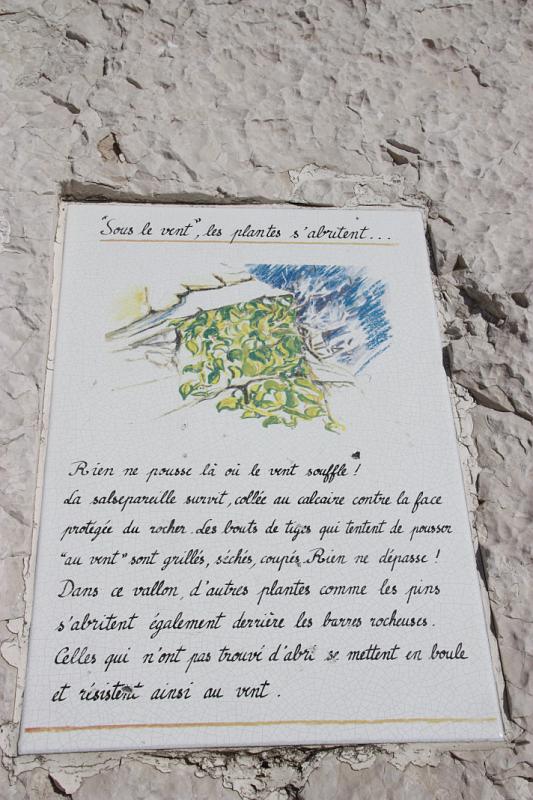 "Sous le vent", les plantes s'abritent...
Rien ne pousse là où le vent souffle !
La salsepareille survit, collée au calcaire contre la face
protégée du rocher. Les bouts de tiges qui tentent de pousser
"au vent" sont grillés, séchés, coupés. Rien ne dépasse !
Dans ce vallon, d'autres plantes comme les pins
s'abritent également derrière les barres rocheuses.
Celles qui n'ont pas trouvé d'abri se mettent en boule
et résistent ainsi au vent .